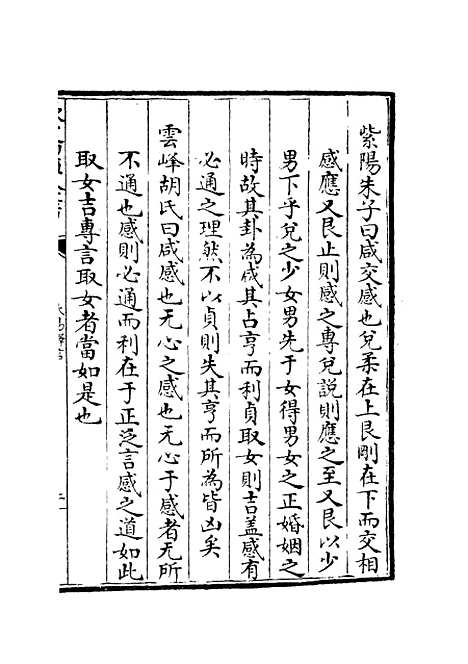 紫陽朱子曰咸交感也兌柔在上艮剛在下而交相
感應又艮止則感之專兌說則應之至又艮以少
男下乎兌之少女男先于女得男女之正婚姻之
時故其卦為咸其占亨而利貞取女則吉盖感有
必通之理然不以貞則失其亨而所為皆凶矣
雲峰胡氏曰咸感也无心之感也无心于感者无所
不通也感則必通而利在于正泛言感之道如此
取女吉專言取女者當如是也